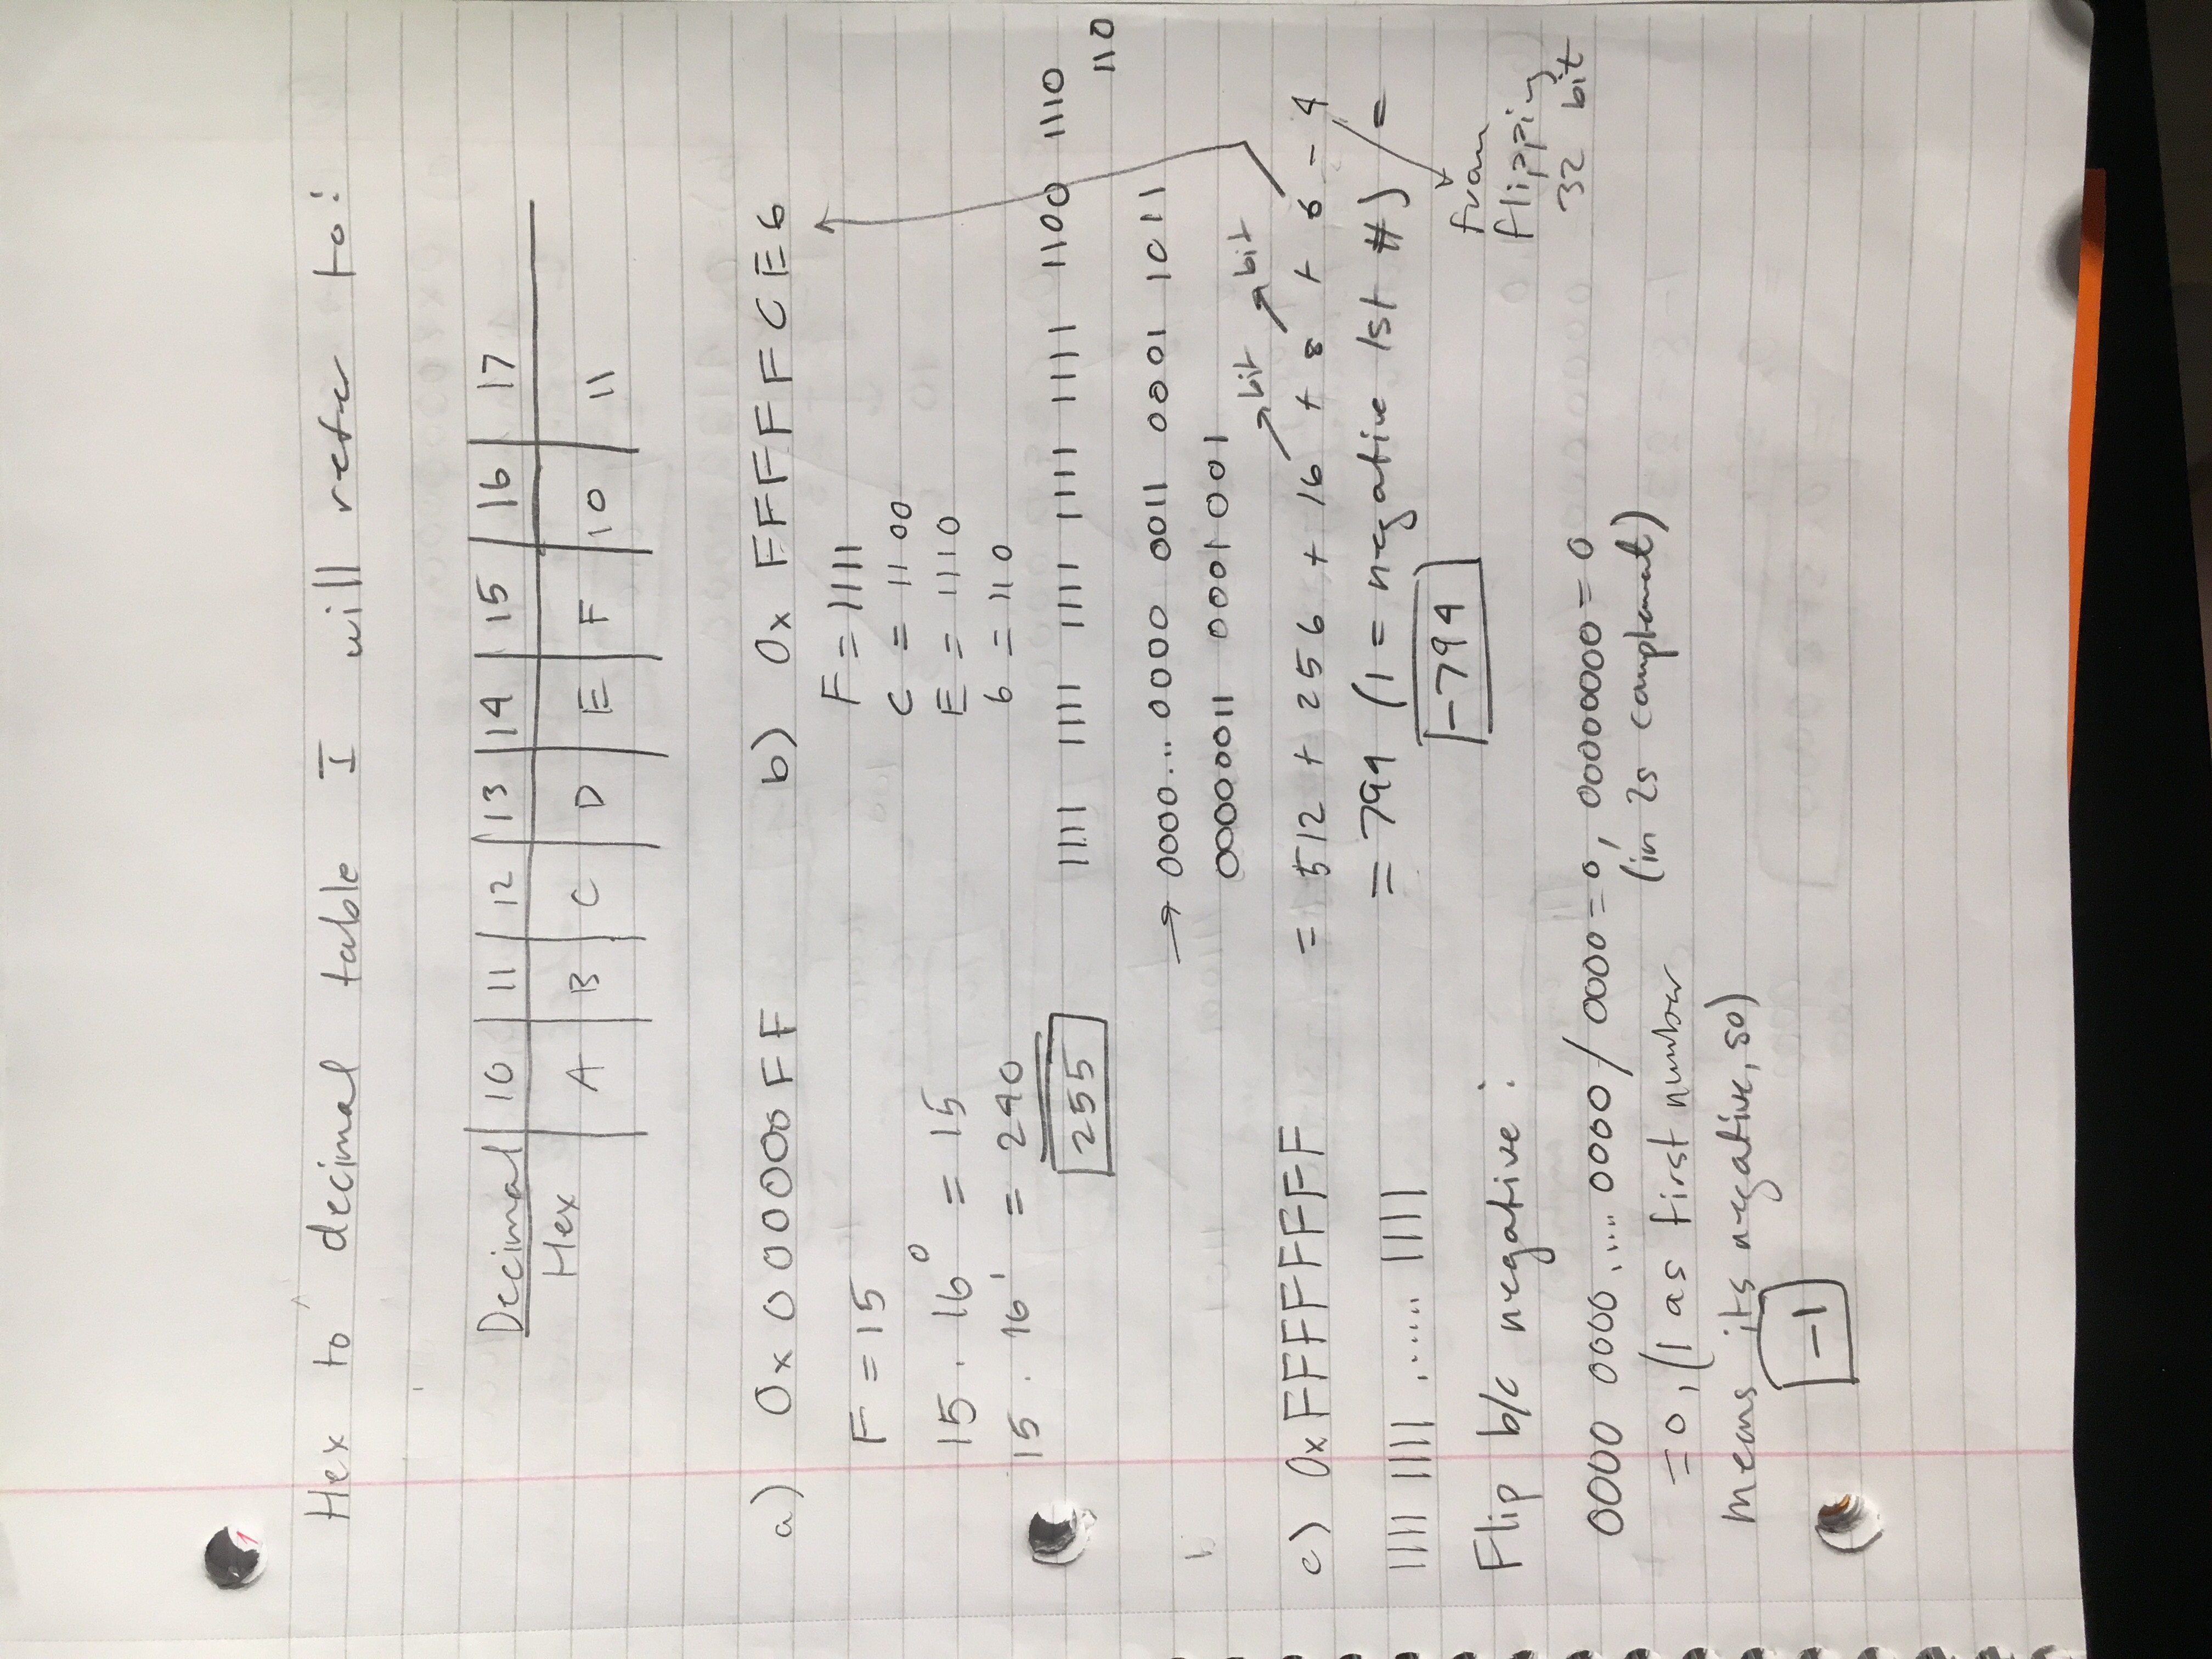 Hex to decimal table I will refer to:
Decimal | 10 | 11 | 12 | 13 | 14 | 15 | 16 | 17
Hex | A | B | C | D | E | F | 10 | 11
a) 0x000000FF
F = 15
15 · 16⁰ = 15
15 · 16¹ = 240
255
b) 0x FFFFFCE6
F = 1111
C = 1100
E = 1110
6 = 110
1111 1111 1111 1111 1111 1111 1100 1110
110
→ 0000... 0000 0000 0011 0001 1011
00000011 0001 001
bit bit
= 512 + 256 + 16 + 8 + 6 - 4
= 794 (1 = negative 1st #) / =
from
flipping
32 bit
-794
c) 0xFFFFFFFF
1111 1111 ...... 11111
Flip b/c negative:
0000 0000 ..... 0000 / 0000 = 0, 00000000 = 0
= 0, (1 as first number (in 2s complement)
means its negative, so)
-1